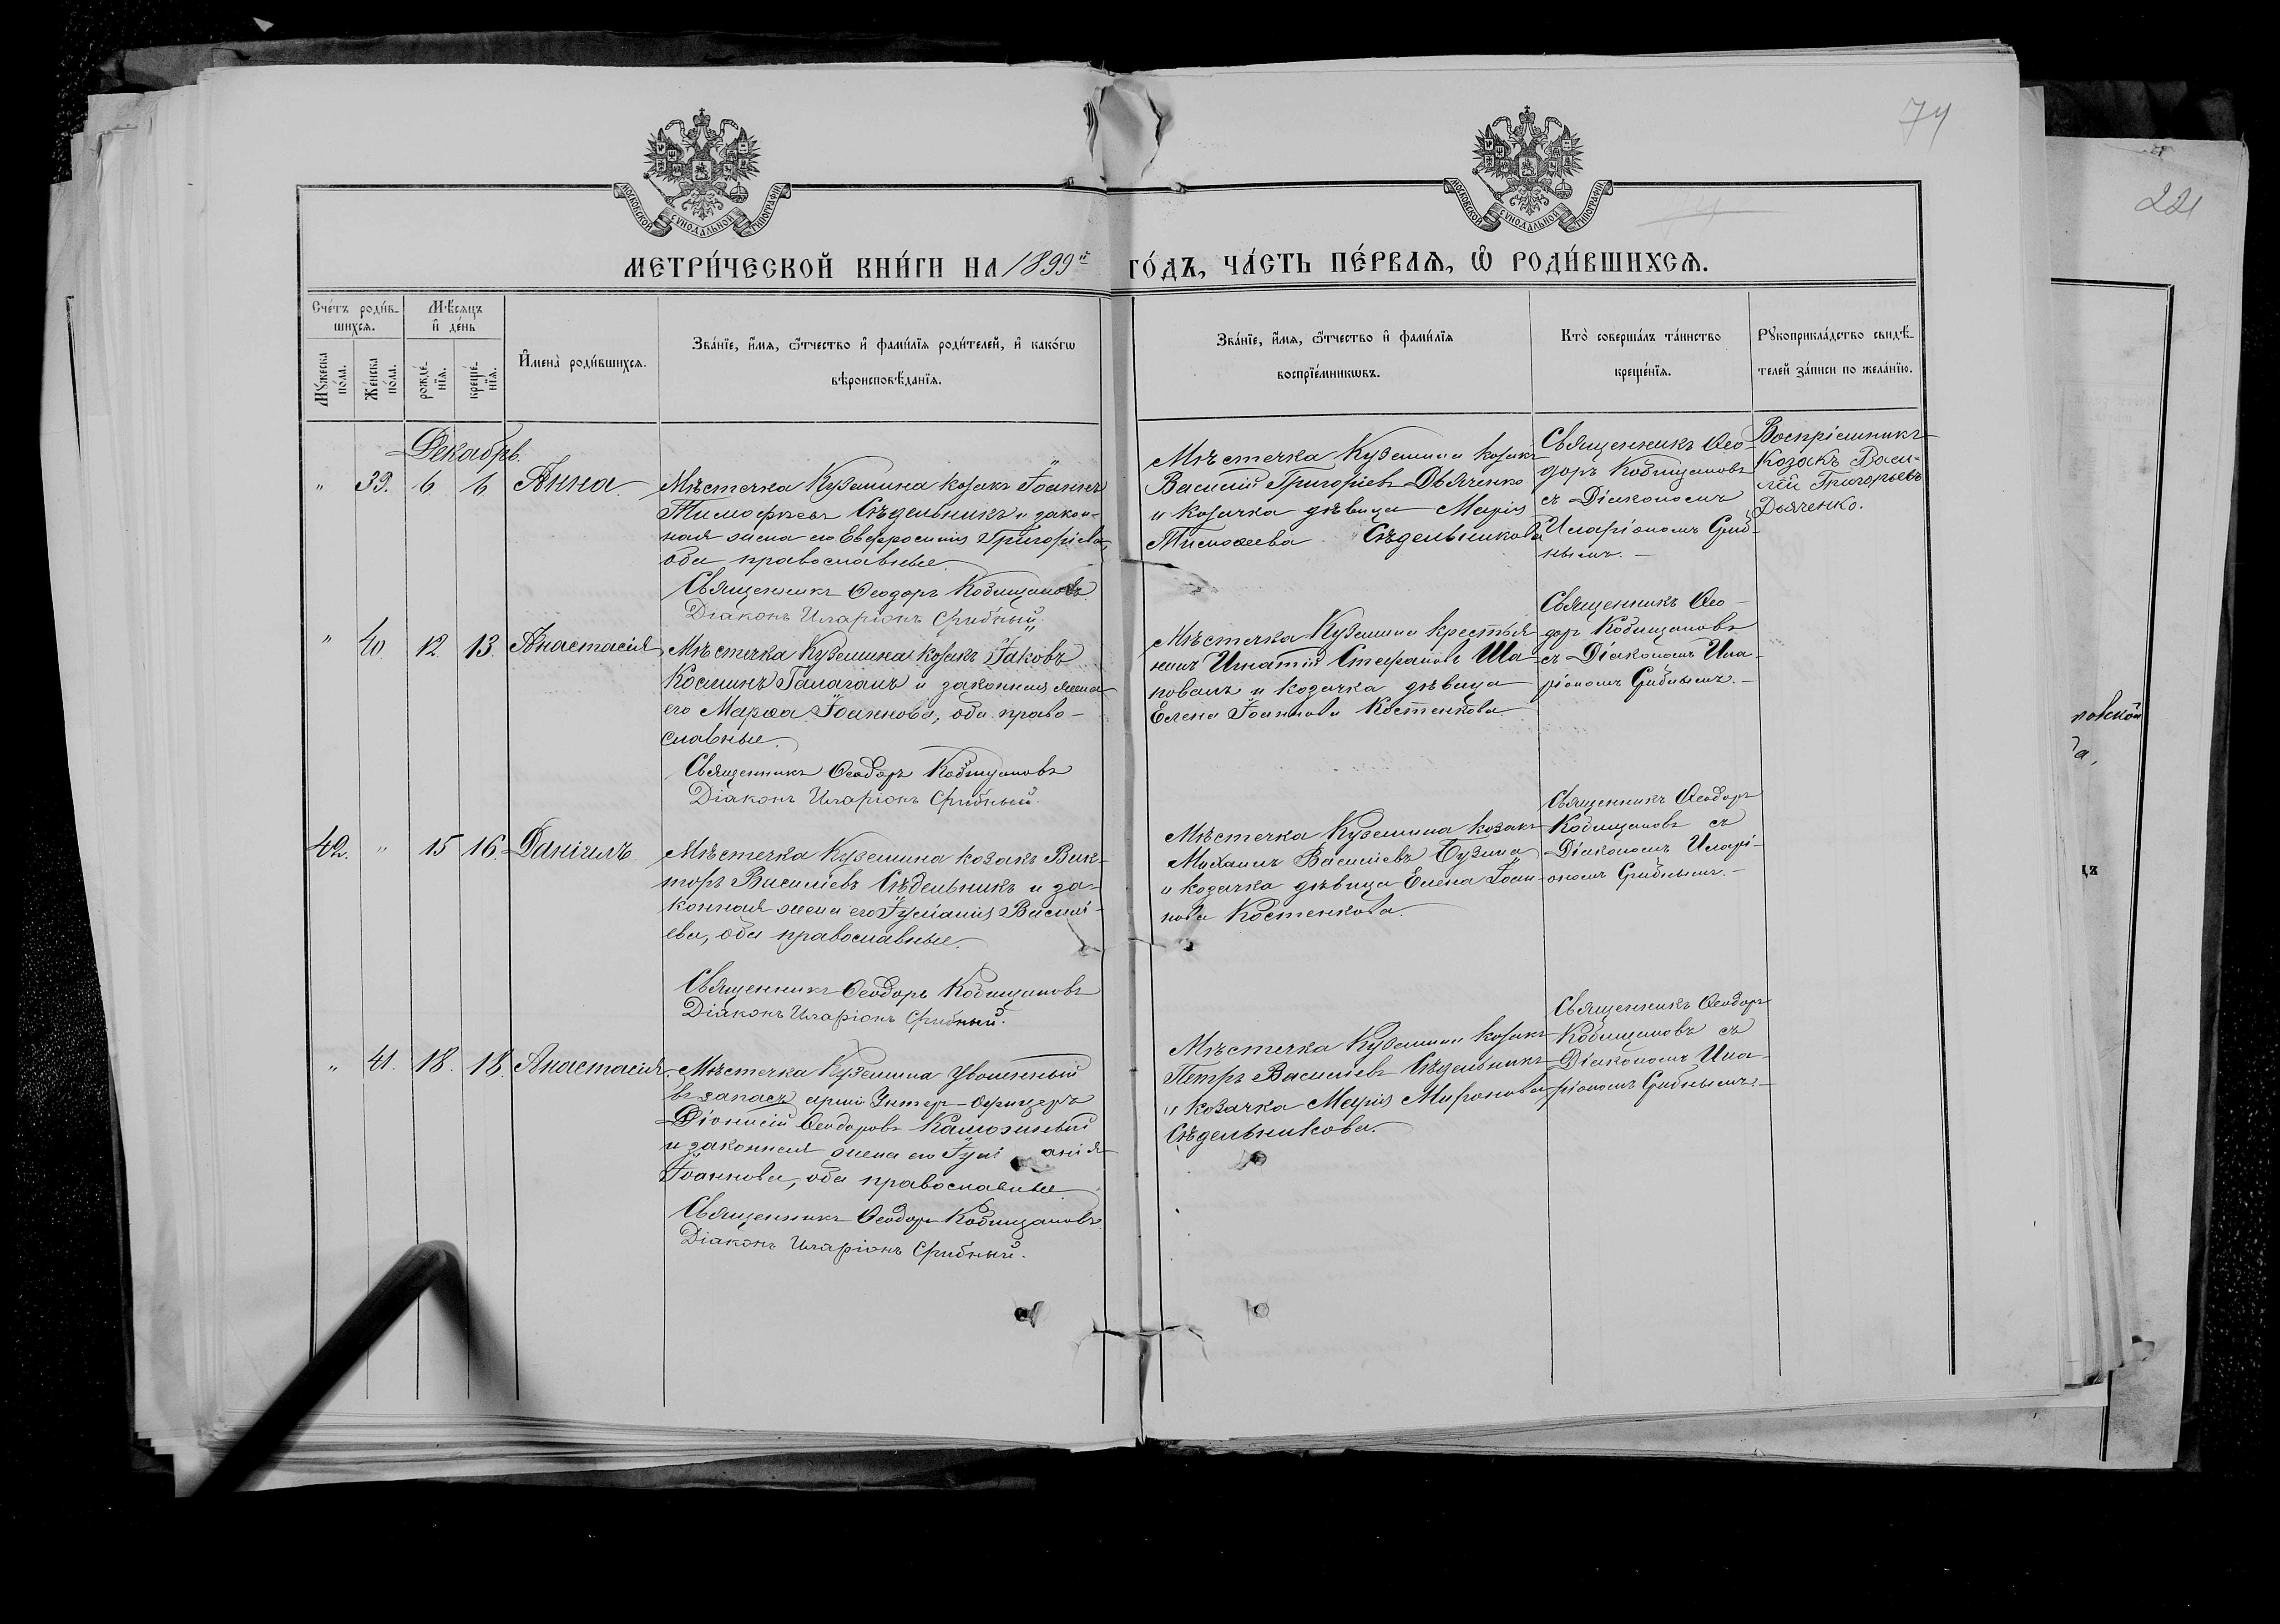 74
221
МОСКОВСКОЙ СѴНОДАЛЬНОЙ ТИПОГРАФІИ
МОСКОВСКОЙ СѴНОДАЛЬНОЙ ТИПОГРАФІИ
МЕТРИ́ЧЕСКОЙ КНИ́ГИ НА 1899й ГО́ДЪ, ЧА́СТЬ ПЕ́РВАѦ, Ѡ҆ РОДИ́ВШИХСѦ.
Сче́тъ роди́в-
шихсѧ.
Мꙋ́жеска по́ла.
Же́нска по́ла.
Мѣ́сѧцъ
и҆ де́нь
рожде́-
нїѧ.
креще́-
нїѧ.
И҆мена̀ роди́вшихсѧ.
Зва́нїе, и҆́мѧ, ѻ҆́тчество и҆ фами́лїѧ роди́телей, и҆ како́гѡ
вѣроисповѣ́данїѧ.
Зва́нїе, и҆́мѧ, ѻ҆́тчество и҆ фами́лїѧ
воспрїе́мникѡвъ.
Кто̀ соверша́лъ та́инство
креще́нїѧ.
Рꙋкоприкла́дство свидѣ́-
телей за́писи по жела́нїю.
Декабрь
" 39. 6. 6 Анна
Мѣстечка Куземина козакъ Іоаннъ
Тимофѣевъ Сѣдельникъ и закон-
ная жена его Евфросинія Григоріева,
оба православные.
Священникъ Ѳеодоръ Кобищановъ
Діаконъ Иларіонъ Срибный.
Мѣстечка Куземина козакъ
Василій Григоріевъ Дьяченко
и козачка дѣвица Марія
Тимоѳеева Сѣдельникова
Священникъ Ѳео-
доръ Кобищановъ
съ Діакономъ
Иларіономъ Сриб-
нымъ. -
Воспріемникъ
Козакъ Васи-
лій Григорьевъ
Дьяченко.
" 40. 12. 13. Анастасія
Мѣстечка Куземина козакъ Іаковъ
Косминъ Галаганъ и законная жена
его Марѳа Іоаннова, оба право-
славные.
Священникъ Ѳеодоръ Кобищановъ
Діаконъ Иларіонъ Срибный.
Мѣстечка Куземина крестья-
нинъ Игнатій Стефановъ Ша-
повалъ и козачка дѣвица
Елена Іоаннова Костенкова.
Священникъ Ѳео-
доръ Кобищановъ
съ Діакономъ Ила-
ріономъ Срибнымъ. -
42. " 15 16. Даніилъ
Мѣстечка Куземина козакъ Вик-
торъ Василіевъ Сѣдельникъ и за-
конная жена его Іуліанія Василі-
ева, оба православные.
Священникъ Ѳеодоръ Кобищановъ
Діаконъ Иларіонъ Срибный.
Мѣстечка Куземина козакъ
Михаилъ Василіевъ Бузина
и козачка дѣвица Елена Іоан-
нова Костенкова.
Священникъ Ѳеодоръ
Кобищановъ съ
Діакономъ Иларі-
ономъ Срибнымъ. -
" 41. 18. 18. Анастасія.
Мѣстечка Куземина уволенный
въ запасъ арміи Унтер-Офицеръ
Діонисій Ѳеодоровъ
и законная жена его Іуліанія
Іоаннова, оба православные.
Священникъ Ѳеодоръ Кобищановъ
Діаконъ Иларіонъ Срибный.
Мѣстечка Куземина козакъ
Петръ Василіевъ Сѣдельникъ
и козачка Марія Миронова
Сѣдельникова.
Священникъ Ѳеодоръ
Кобищановъ съ
Діакономъ Ила-
ріономъ Срибнымъ. -